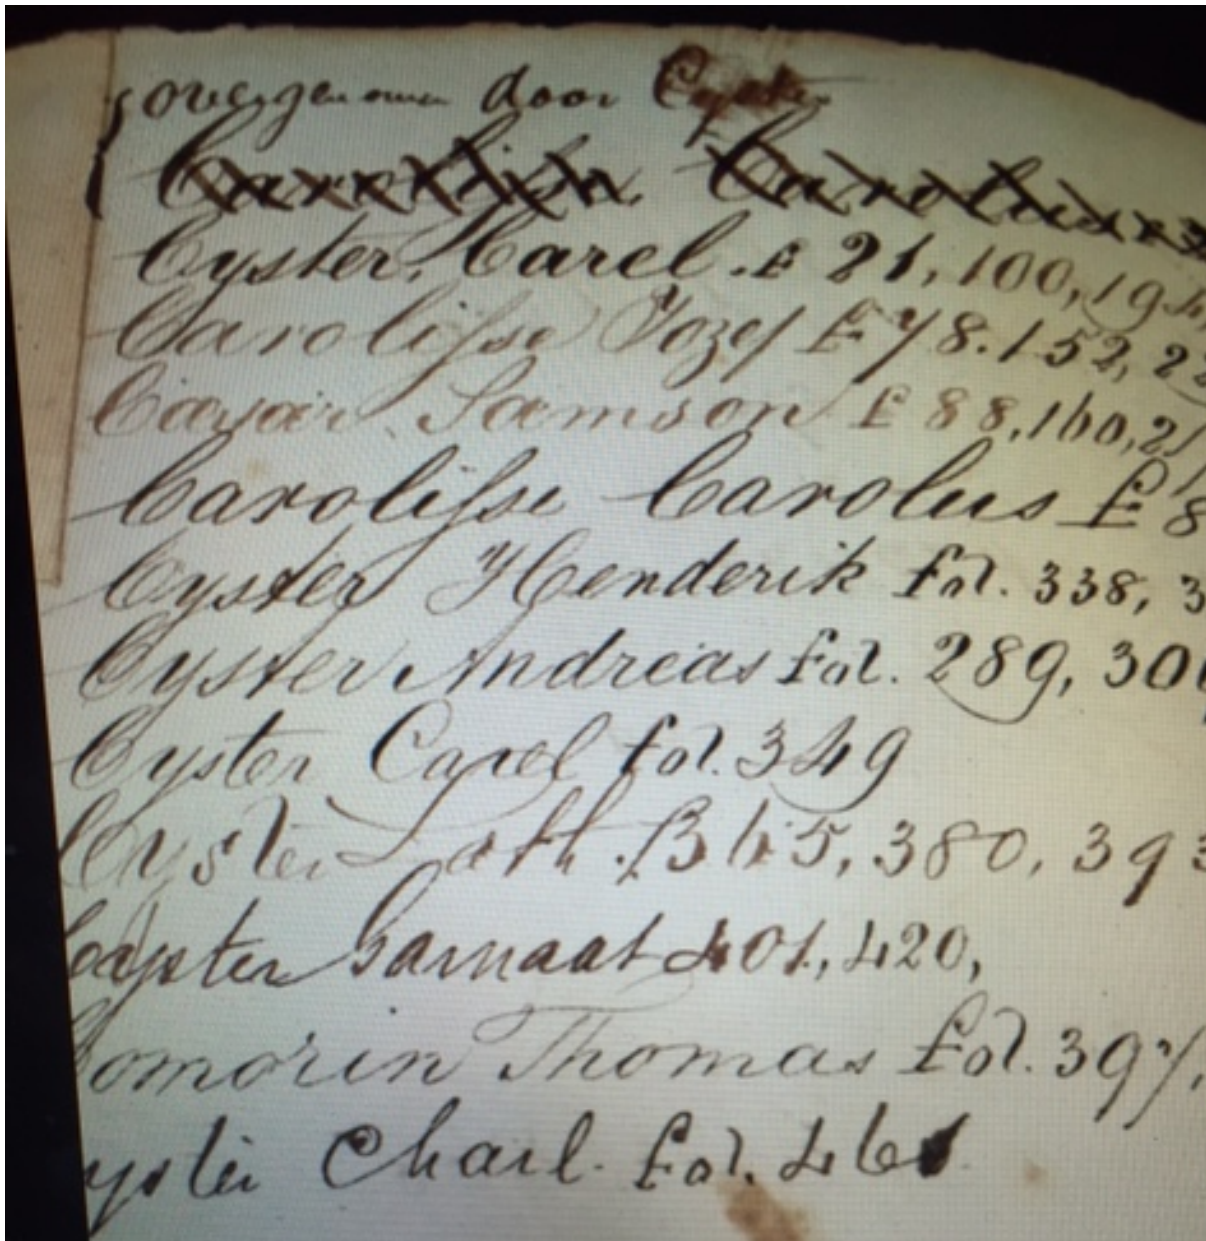 overgenomen door Cyster
Cyster, Carel. F 21, 100, 194,
Carolisse Jozef F 78. 152, 22
Samson F 88, 160, 21
Carolisse Carolus F 8
Cyster Henderik fol. 338, 3
Cyster Andreas fol. 289, 306
Cyster Carel fol. 349
Cyster Dath. f 365, 380, 393
Cuyster Garnaat 401, 420,
Comorin Thomas fol. 397,
yster Charl. fol. 461